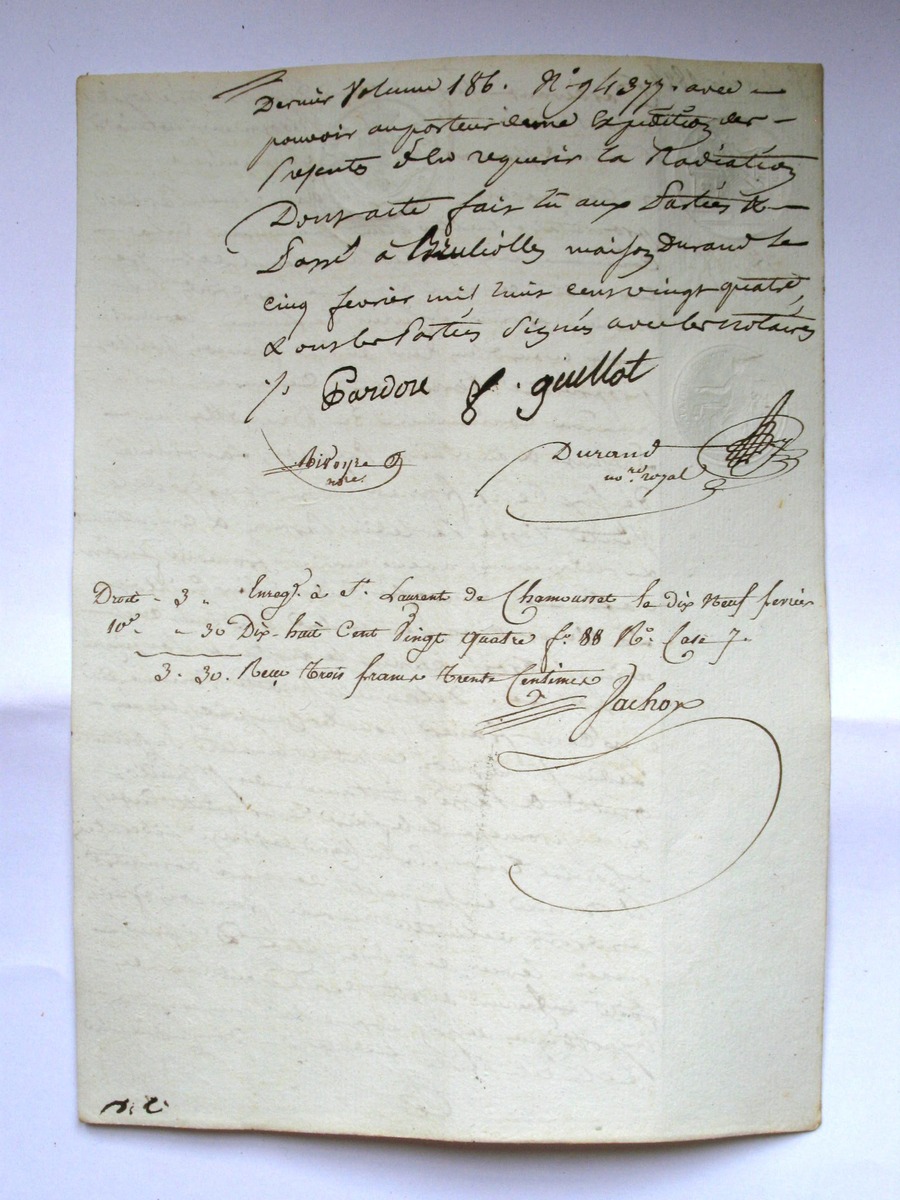 Dernier Volume 186. N.º 94377. avec
pouvoir au porteur d'une Expedition des
présentes d'en requerir la Radiation
Dont acte fait lu aux Parties &
Passé à maison Durand le
cinq fevrier mil huit cent vingt quatre,
& ont les Parties Signés avec les notaires
Pardon guillot
nre.
Durand
no.re royal
Droit - 3 „ Enreg.é à S.t Laurent de Chamousset le dix Neuf fevrier
10e. „ 30 Dix-huit Cent Vingt quatre f.º 88 R.º Case 7.
3. 30. Reçu trois francs trente Centimes
Jachon